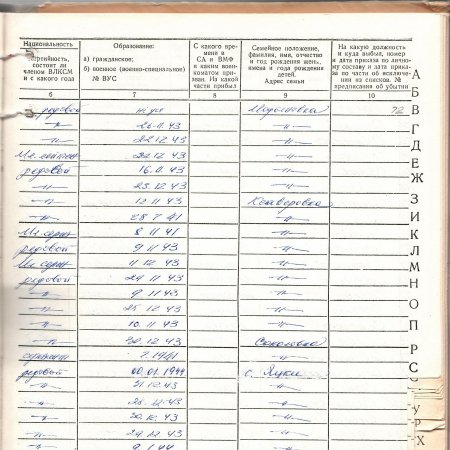 Национальность
Партийность, состоит ли членом ВЛКСМ и с какого года
Образование:
а) гражданское;
б) военное (военно-специальное)
№ ВУС
С какого времени в СА и ВМФ и каким военкоматом призван. Из какой части прибыл
Семейное положение, фамилия, имя, отчество и год рождения жены, имена и года рождения детей.
Адрес семьи
На какую должность и куда выбыл, номер и дата приказа по личному составу и дата приказа по части об исключении из списков. № предписания об убытии
6 7 8 9 10
рядовой 72
-"- 26.11.43 -"-
-"- 22.12.43 -"-
22.12.43 -"-
рядовой 16.11.43 -"-
-"- 23.12.43 -"-
-"- 12 11 43
-"- 28 7 41 -"-
Мл. серж 8 11 41 -"-
рядовой 9 11 43 -"-
Мл. серж 11 12 43 -"-
рядовой 24 11 43 -"-
-"- 9 11 43 -"-
-"- 25 12 43 -"-
-"- 10. 11 43 -"-
-"- 30. 12 43 Соколовка
7.1941 -"-
рядовой 00.01.1944 с. Яуки
-"- 31.12.43 -"-
-"- 28.12.43 -"-
-"- 30.12.43 -"-
-"- 29.12.43 -"-
-"- -"-
А
Б
В
Г
Д
Е
Ж
З
И
К
Л
М
Н
О
П
Р
С
У
Х